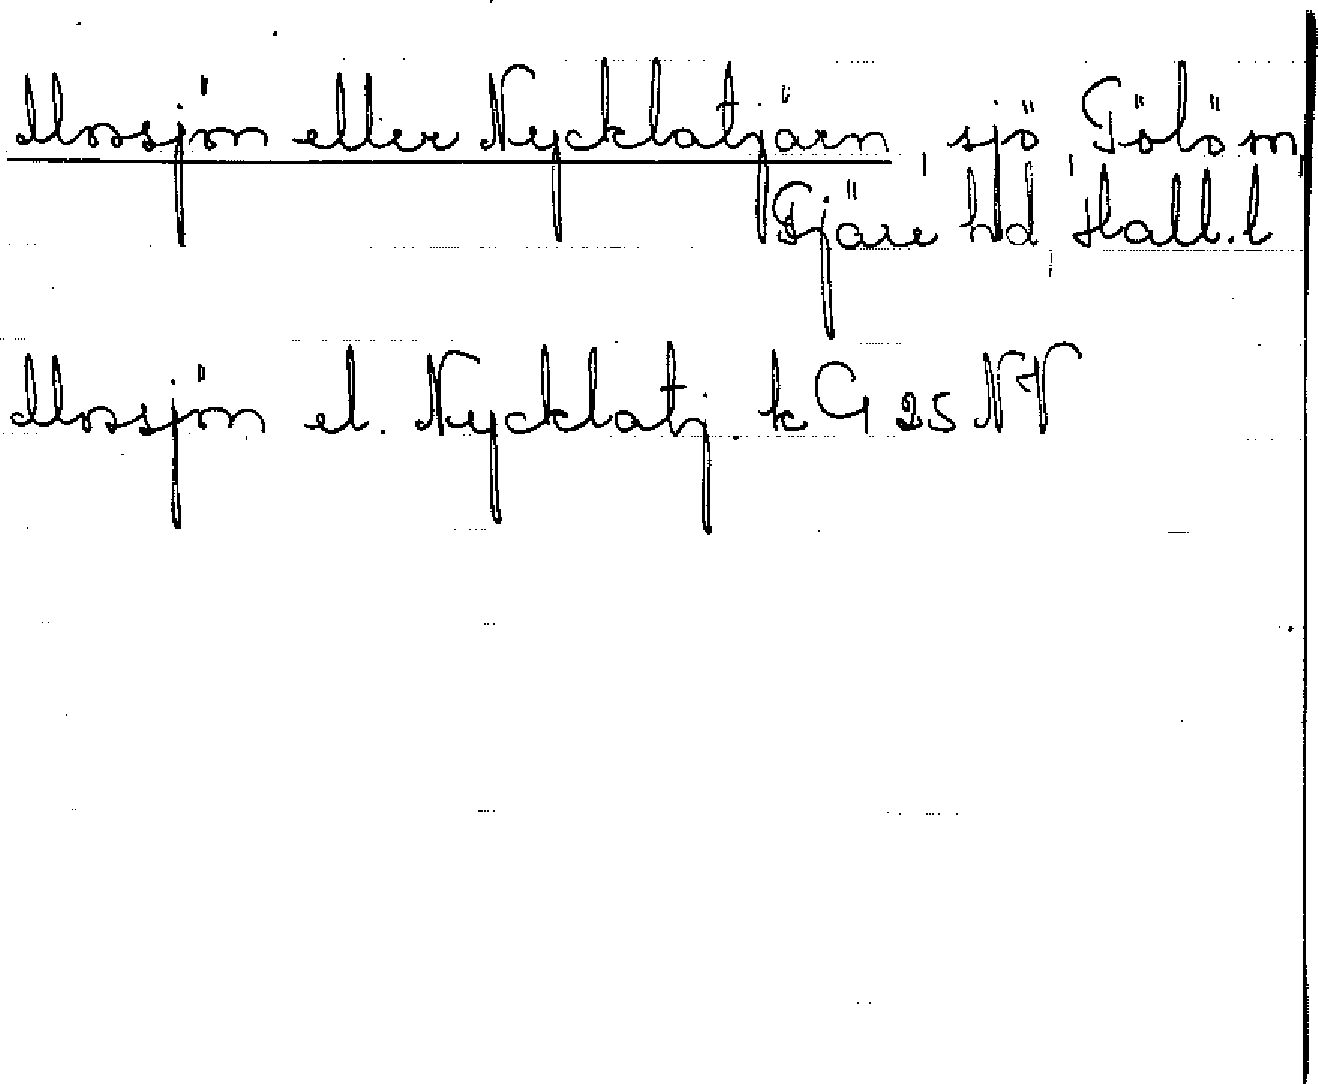 Mossjön eller Nycklatjärn, sjö, Tölö sn,
Fjäre hd, Hall. l
Mossjön el. Nycklatj kG 25 NV